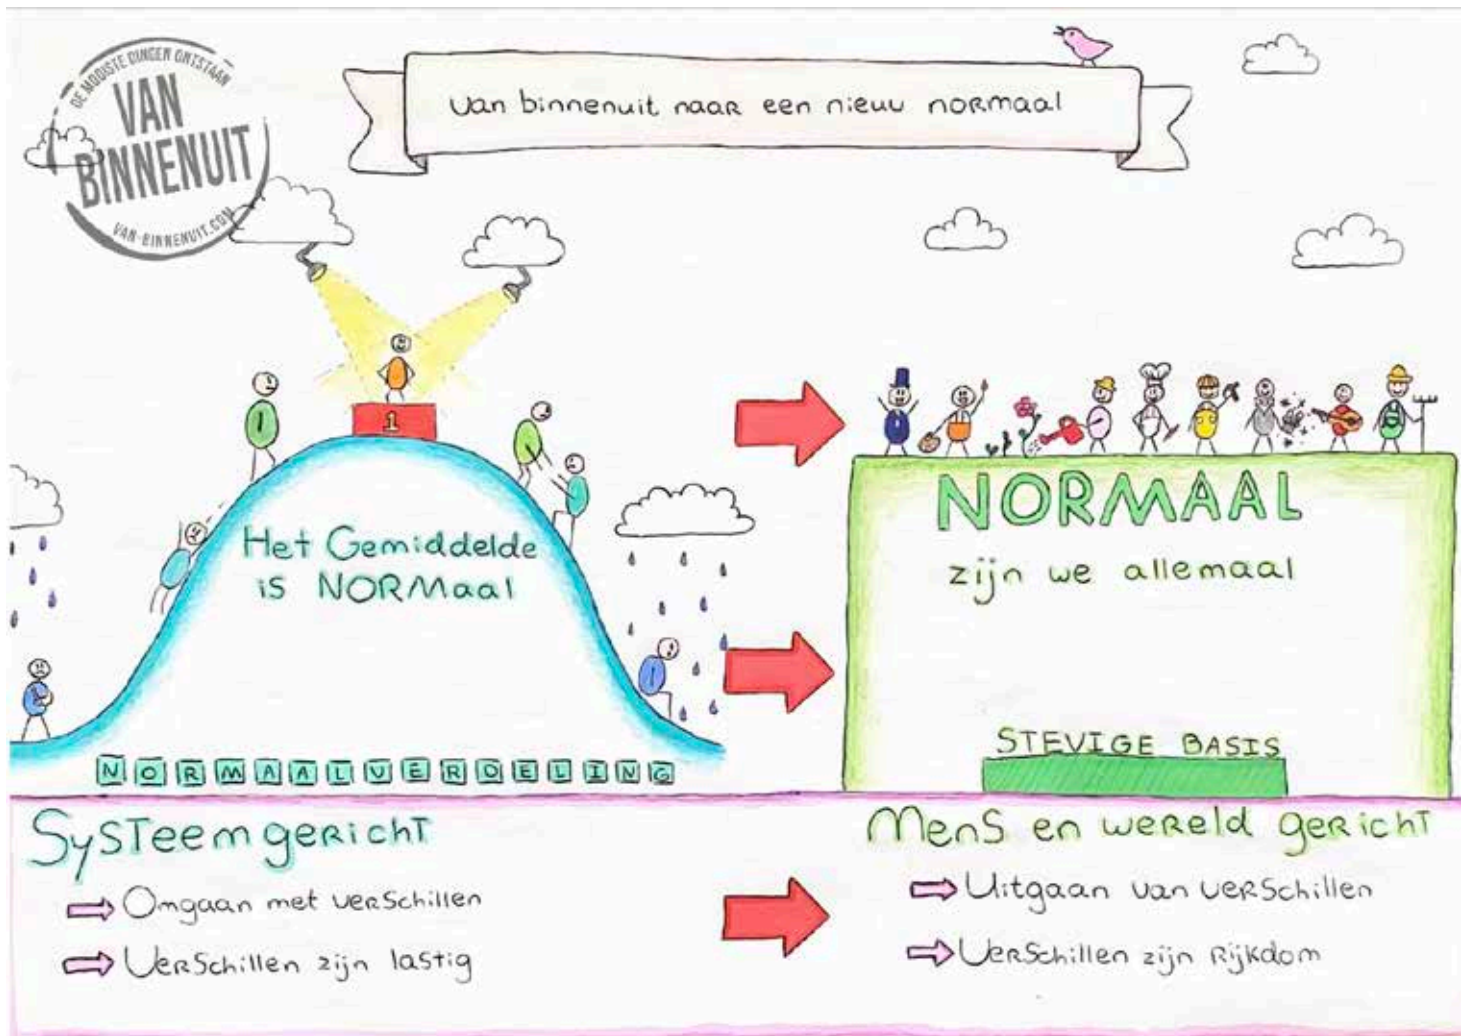 DE MOOISTE DINGEN ONTSTAAN
VAN
BINNENUIT
VAN-BINNENUIT.COM
Van binnenuit naar een nieuw normaal
1
Het Gemiddelde
is NORMaal
NORMAALVERDELING
NORMAAL
zijn we allemaal
STEVIGE BASIS
Systeemgericht
Omgaan met verschillen
Verschillen zijn lastig
Mens en wereld gericht
Uitgaan van verschillen
Verschillen zijn Rijkdom